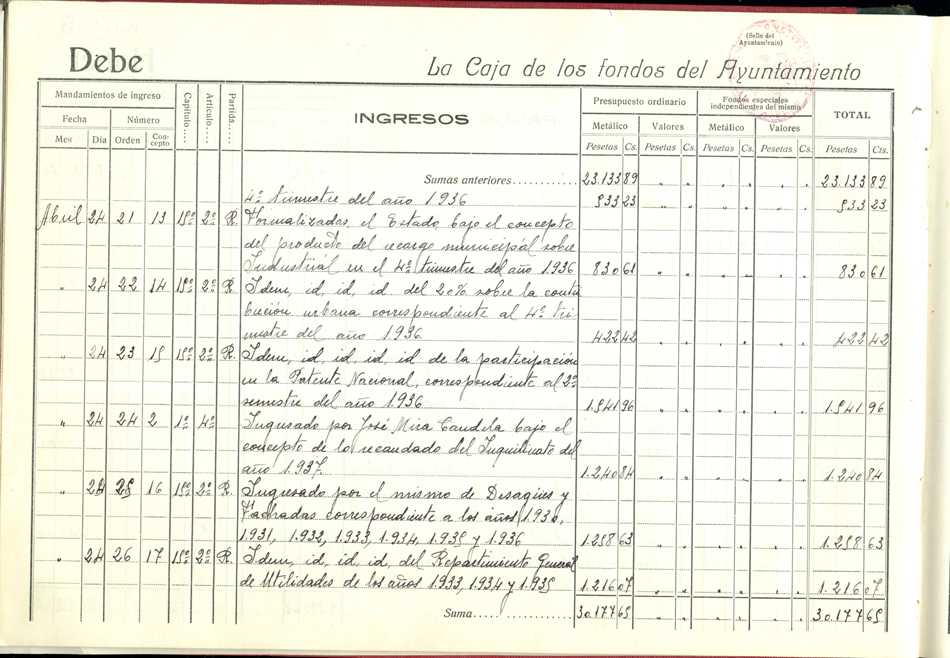 (Sello del
Ayuntamiento)
Debe
La Caja de los fondos del Ayuntamiento
Mandamientos de ingreso
Fecha Número
Mes Día Orden Concepto
Capítulo.... Artículo.... Partida....
INGRESOS
Presupuesto ordinario
Metálico Valores
Fondos especiales
independientes del mismo
Metálico Valores
TOTAL
Pesetas Cs. Pesetas Cs. Pesetas Cs. Pesetas Cs. Pesetas Cts.
Sumas anteriores............ 23.133 89 " " " " " " 23.133 89
4º trimestre del año 1936 533 23 " " " " " " 533 23
Abril 24 21 13 15º 2º R. Formalizadas, el Estado, bajo el concepto
del producto del recargo municipal sobre
Industrial en el 4º trimestre del año 1936 830 61 " " " " " " 830 61
" 24 22 14 15º 2º R. Idem, id, id, id del 20% sobre la contri
bución urbana correspondiente al 4º tri-
mestre del año 1936. 422 42 " " " " " " 422 42
" 24 23 15 15º 2º R. Idem, id, id, id, id de la participación
en la Patente Nacional, correspondiente al 2º
semestre del año 1936 1.541 96 " " " " " " 1.541 96
" 24 24 2 1º 4º Ingresado por José Mira Candela bajo el
concepto de lo recaudado del Inquilinato del
año 1937. 1.240 84 " " " " " " 1.240 84
" 24 25 16 15º 2º R. Ingresado por el mismo de Desagües y
Fachadas correspondiente a los años 1930,
1.931, 1.932, 1.933, 1.934, 1.935 y 1.936 1.258 63 " " " " " " 1.258 63
" 24 26 17 15º 2º R. Idem, id, id, id, del Repartimiento General
de Utilidades de los años 1.933, 1.934 y 1.935 1.216 07 " " " " " " 1.216 07
Suma...................... 30.177 65 " " " " " " 30.177 65